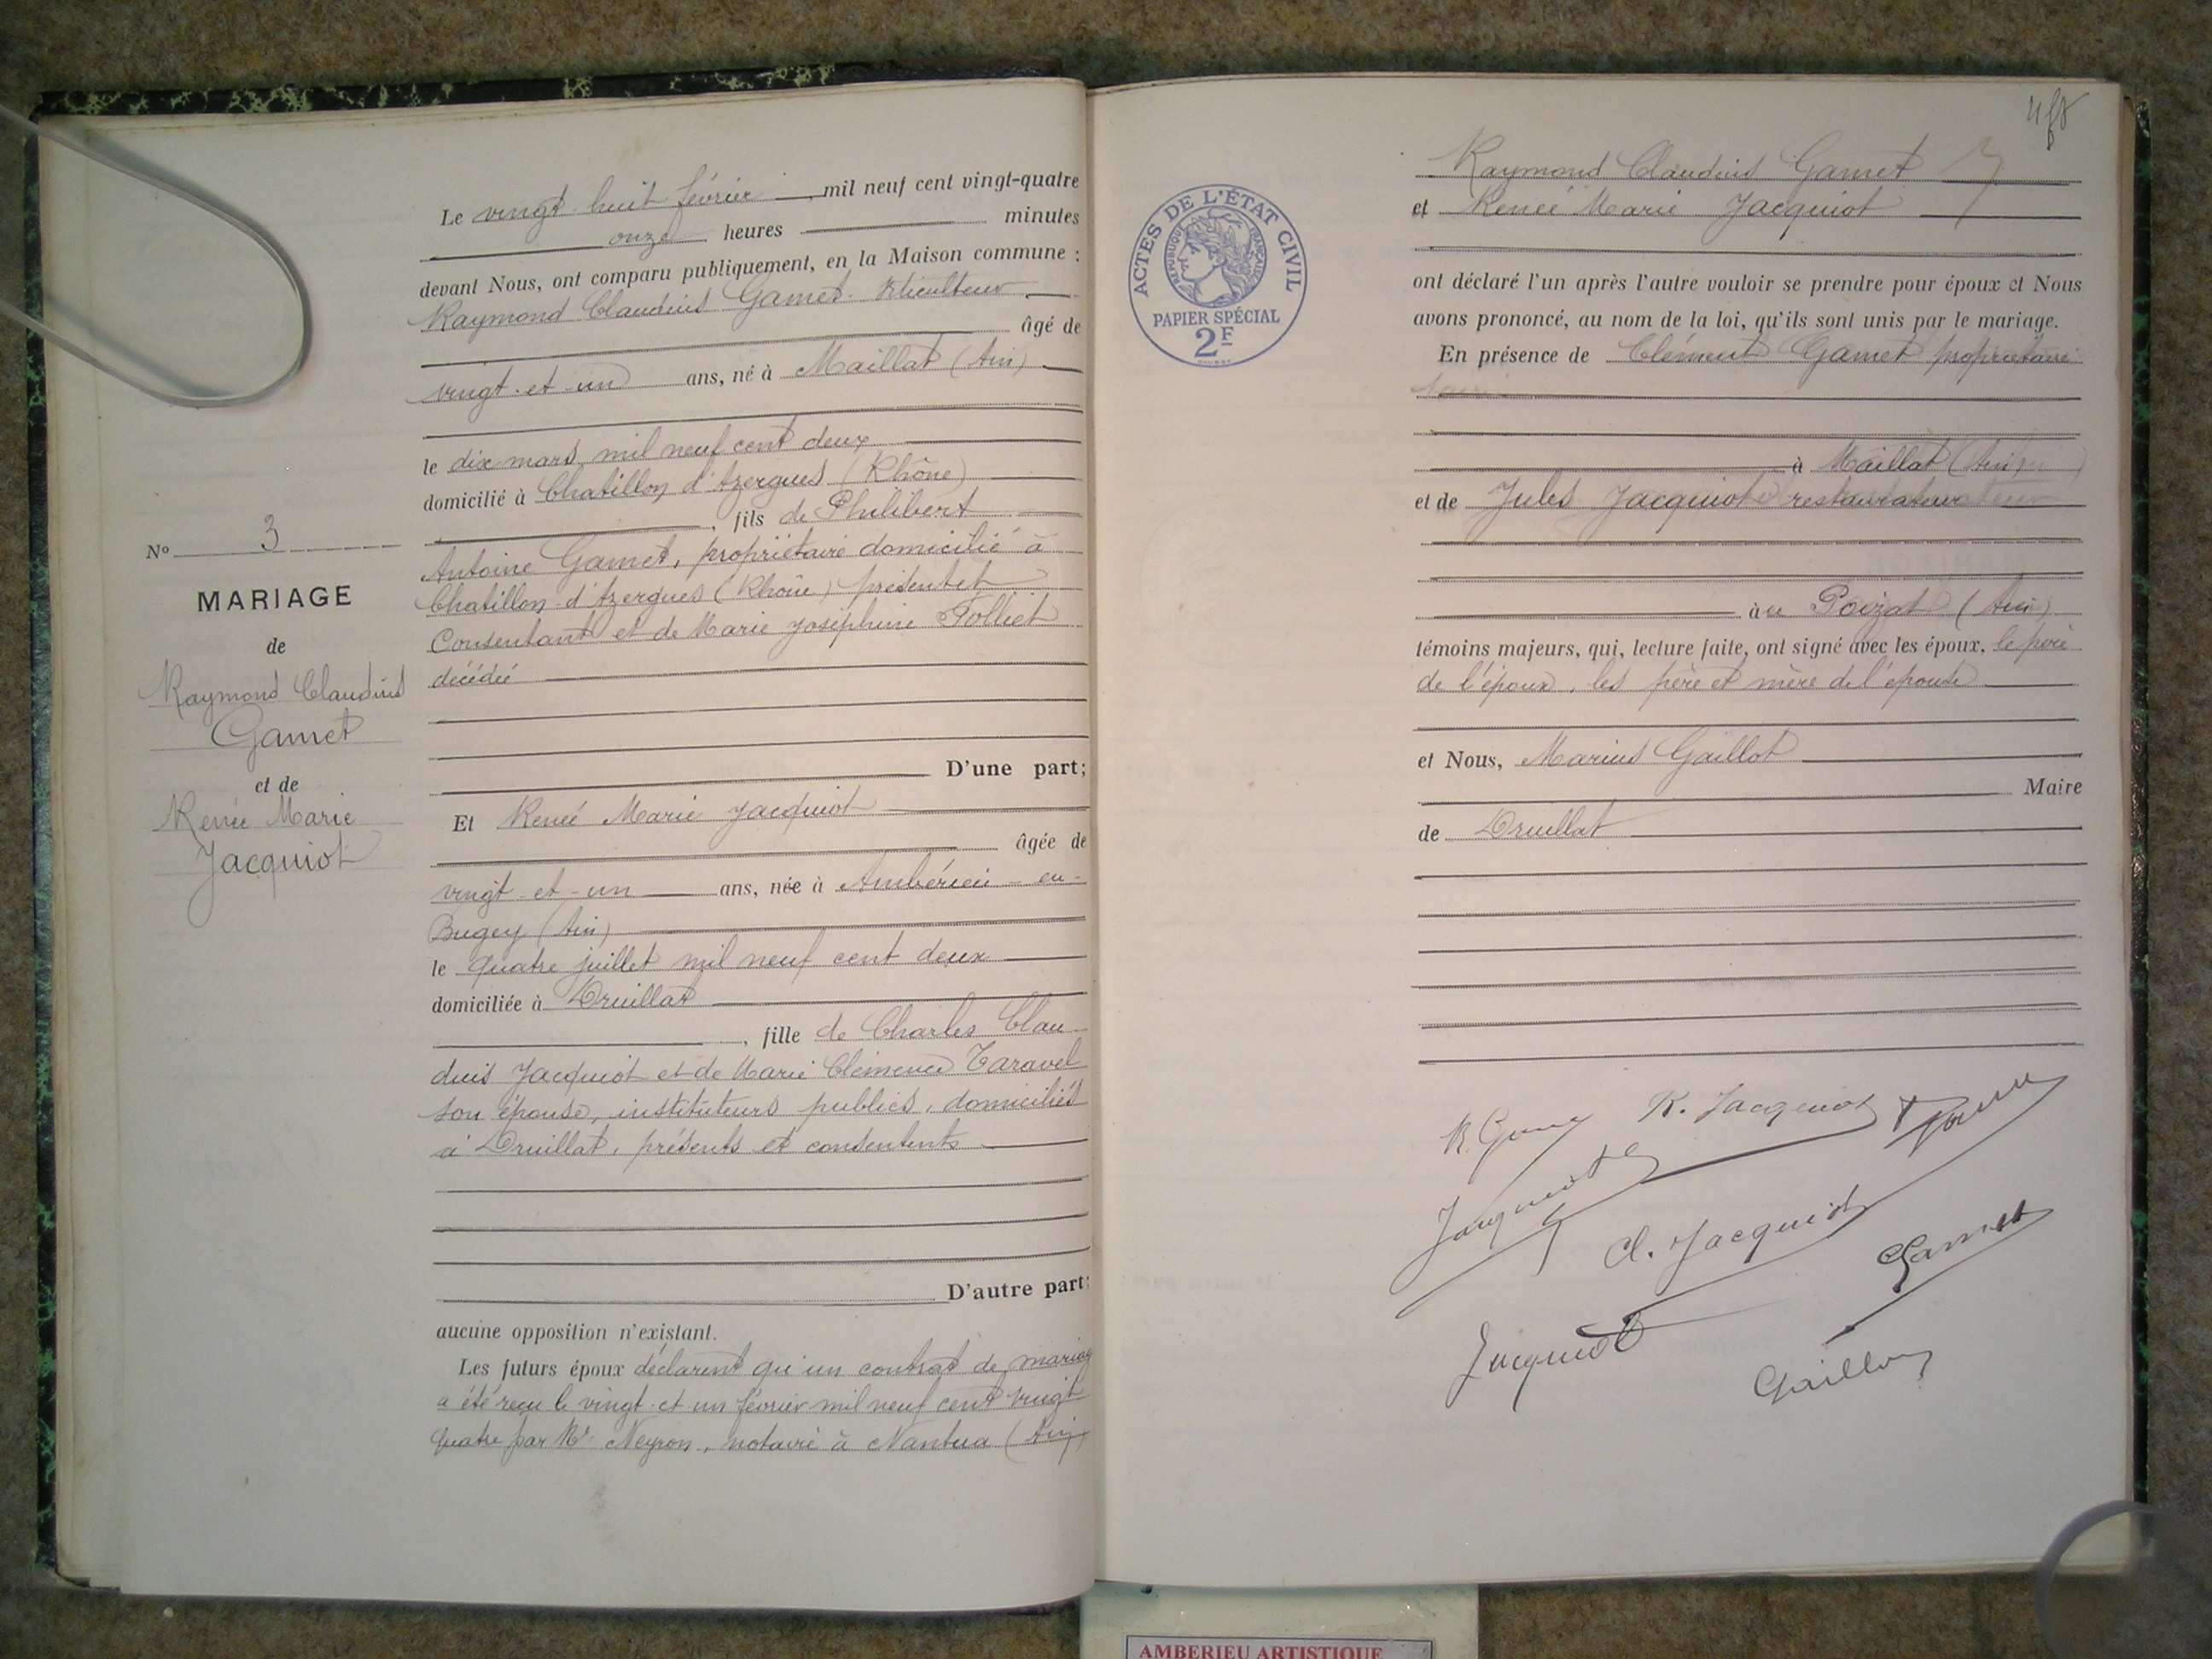 Le vingt huit février mil neuf cent vingt-quatre
onze heures minutes
devant Nous, ont comparu publiquement, en la Maison commune :
Raymond Claudius Gamet
âgé de
vingt-et-un ans, né à Maillat (Ain)
le dix mars mil neuf cent deux
domicilié à Chatillon d'Azergues (Rhône)
, fils de Philibert
Antoine Gamet, propriétaire domicilié à
Chatillon d'Azergues (Rhône) présent et
Consentant et de Marie Joséphine Tolliet
décédée
D'une part;
Et Renée Marie Jacquiot
âgée de
vingt-et-un ans, née à Ambérieu-en-
Bugey (Ain)
le quatre juillet mil neuf cent deux
domiciliée à Druillat
, fille de Charles Clau-
dius Jacquiot et de Marie Clémence Taravel
son épouse, instituteurs publics, domiciliés
à Druillat, présents et consentents
D'autre part:
aucune opposition n'existant.
Les futurs époux déclarent qu'un contrat de mariage
a été reçu le vingt-et-un février mil neuf cent vingt
quatre par Me Neyron, notaire à Nantua (Ain)
No 3
MARIAGE
de
Raymond Claudius
Gamet
et de
Renée Marie
Jacquiot
ACTES DE L'ÉTAT CIVIL
RÉPUBLIQUE FRANÇAISE
PAPIER SPÉCIAL
2F
Raymond Claudius Gamet
et Renée Marie Jacquiot
ont déclaré l'un après l'autre vouloir se prendre pour époux et Nous
avons prononcé, au nom de la loi, qu'ils sont unis par le mariage.
En présence de Clément Gamet propriétaire
à Maillat (Ain)
et de Jules Jacquiot restaurateur
au Poizat (Ain)
témoins majeurs, qui, lecture faite, ont signé avec les époux, le père
de l'époux, les père et mère de l'épouse
et Nous, Marius Gaillot
Maire
de Druillat
R. Gamet R. Jacquiot
Jacquiot
Cl. Jacquiot
Gamet
Jacquiot
Gaillot
AMBERIEU ARTISTIQUE